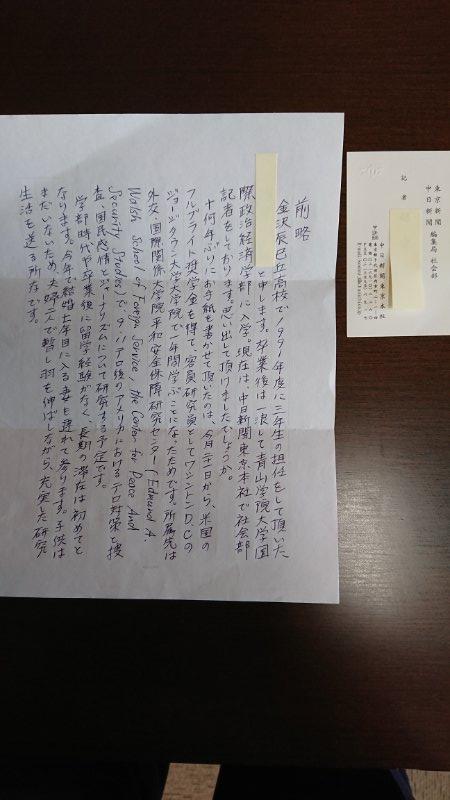 前略
金沢辰巳丘高校で1991年度に三年生の担任をして頂いた
と申します。卒業後は一浪して青山学院大学国
際政治経済学部に入学。現在は、中日新聞東京本社で社会部
記者をしております。思い出して頂けましたでしょうか。
十何年ぶりにお手紙を書かせて頂いたのは、今月二十一日から、米国の
フルブライト奨学金を得て、客員研究員としてワシントンD.Cの
ジョージタウン大学大学院で一年間学ぶことになったためです。所属先は
外交・国際関係大学院平和安全保障研究センター(Edmund A.
Walsh School of Foreign Service, the Center for Peace And
Security Studies)で、9・11テロ後のアメリカにおけるテロ対策と捜
査、国民感情とジャーナリズムについて研究する予定です。
学部時代や卒業後に留学経験がなく、長期の滞在は初めてと
なります。今年で結婚七年目に入る妻も連れて参ります。子供は
まだいないため、夫婦二人で暫し羽を伸ばしながら、充実した研究
生活を送る所存です。
東京新聞
中日新聞 編集局 社会部
記者
中日新聞東京本社